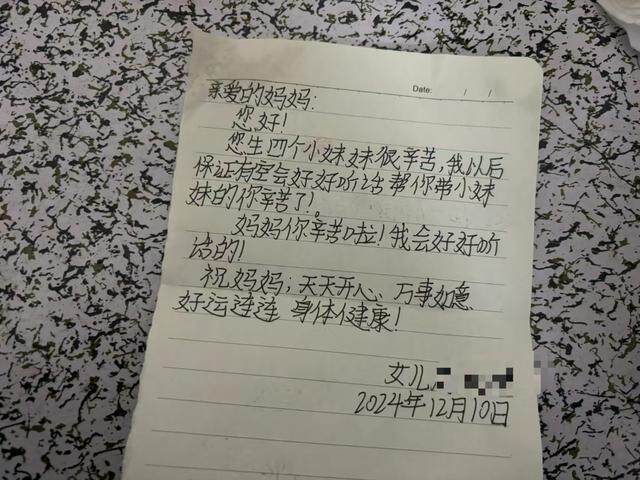 Date: / /
亲爱的妈妈:
您好!
您生四个小妹妹很辛苦,我以后
保证有空会好好听话 帮你带小妹
妹的你辛苦了!
妈妈你辛苦啦!我会好好听
话的!
祝妈妈;天天开心、万事如意
好运连连 身体健康!
女儿
2024年12月10日